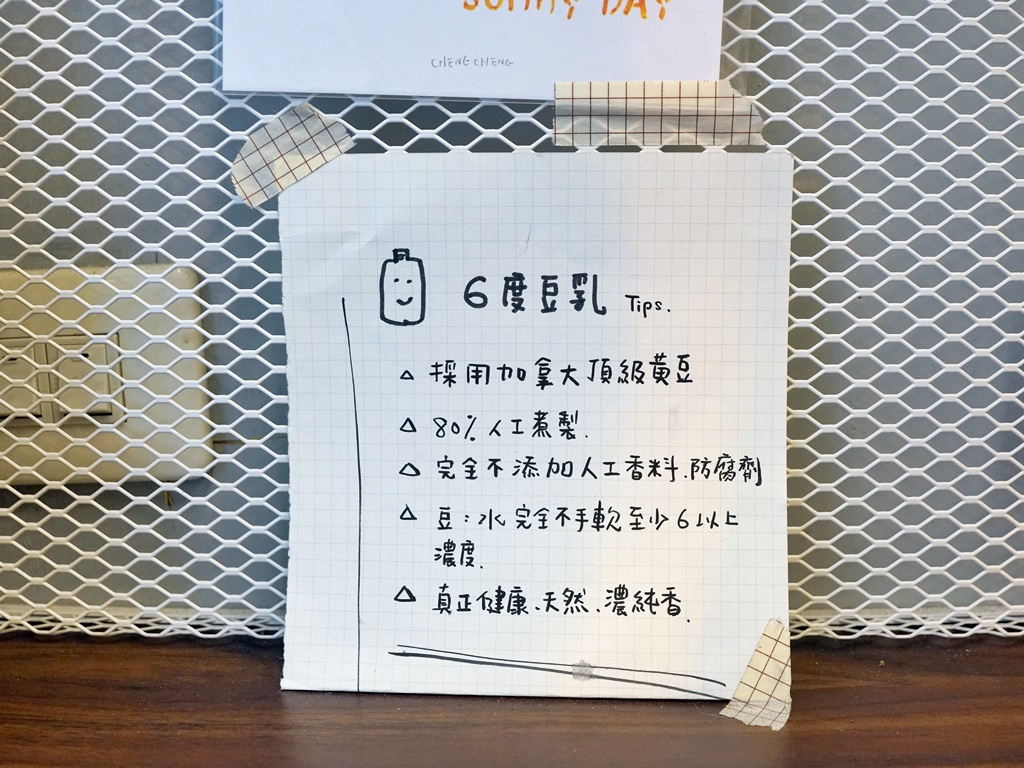 SUNNY DAY
CHENG CHENG
6度豆乳 Tips.
△ 採用加拿大頂級黃豆
△ 80% 人工煮製.
△ 完全不添加人工香料.防腐劑
△ 豆:水 完全不手軟至少6以上
濃度.
△ 真正健康、天然、濃純香.